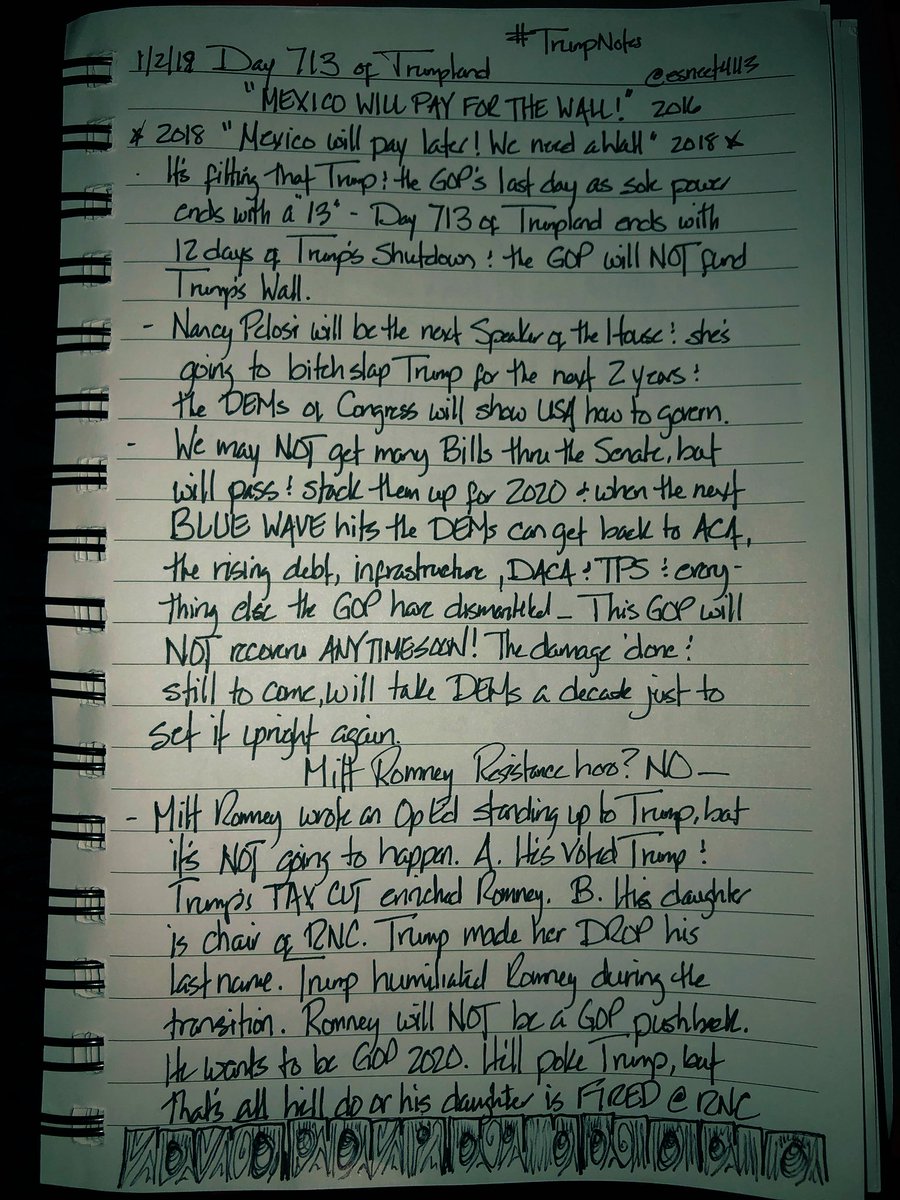 #TrumpNotes
1/2/18 Day 713 of Trumpland
@esneet4113
"MEXICO WILL PAY FOR THE WALL!" 2016
* 2018 "Mexico will pay later! We need a Wall" 2018 *
It's fitting that Trump & the GOP's last day as sole power
ends with a "13" - Day 713 of Trumpland ends with
12 days of Trump's Shutdown & the GOP will NOT fund
Trump's Wall.
- Nancy Pelosi will be the next Speaker of the House & she's
going to bitch slap Trump for the next 2 years &
the DEMs of Congress will show USA how to govern.
- We may NOT get many Bills thru the Senate, but
will pass & stack them up for 2020 & when the next
BLUE WAVE hits the DEMs can get back to ACA,
the rising debt, infrastructure, DACA & TPS & every-
thing else the GOP have dismantled - This GOP will
NOT recover ANYTIMESOON! The damage done &
still to come, will take DEMs a decade just to
set it upright again.
Mitt Romney Resistance hero? NO -
- Mitt Romney wrote an OpEd standing up to Trump, but
it's NOT going to happen. A. His Voted Trump &
Trump's TAX CUT enriched Romney. B. His daughter
is chair of RNC. Trump made her DROP his
last name. Trump humiliated Romney during the
transition. Romney will NOT be a GOP pushback.
He wants to be GOP 2020. He'll poke Trump, but
that's all he'll do or his daughter is FIRED @ RNC